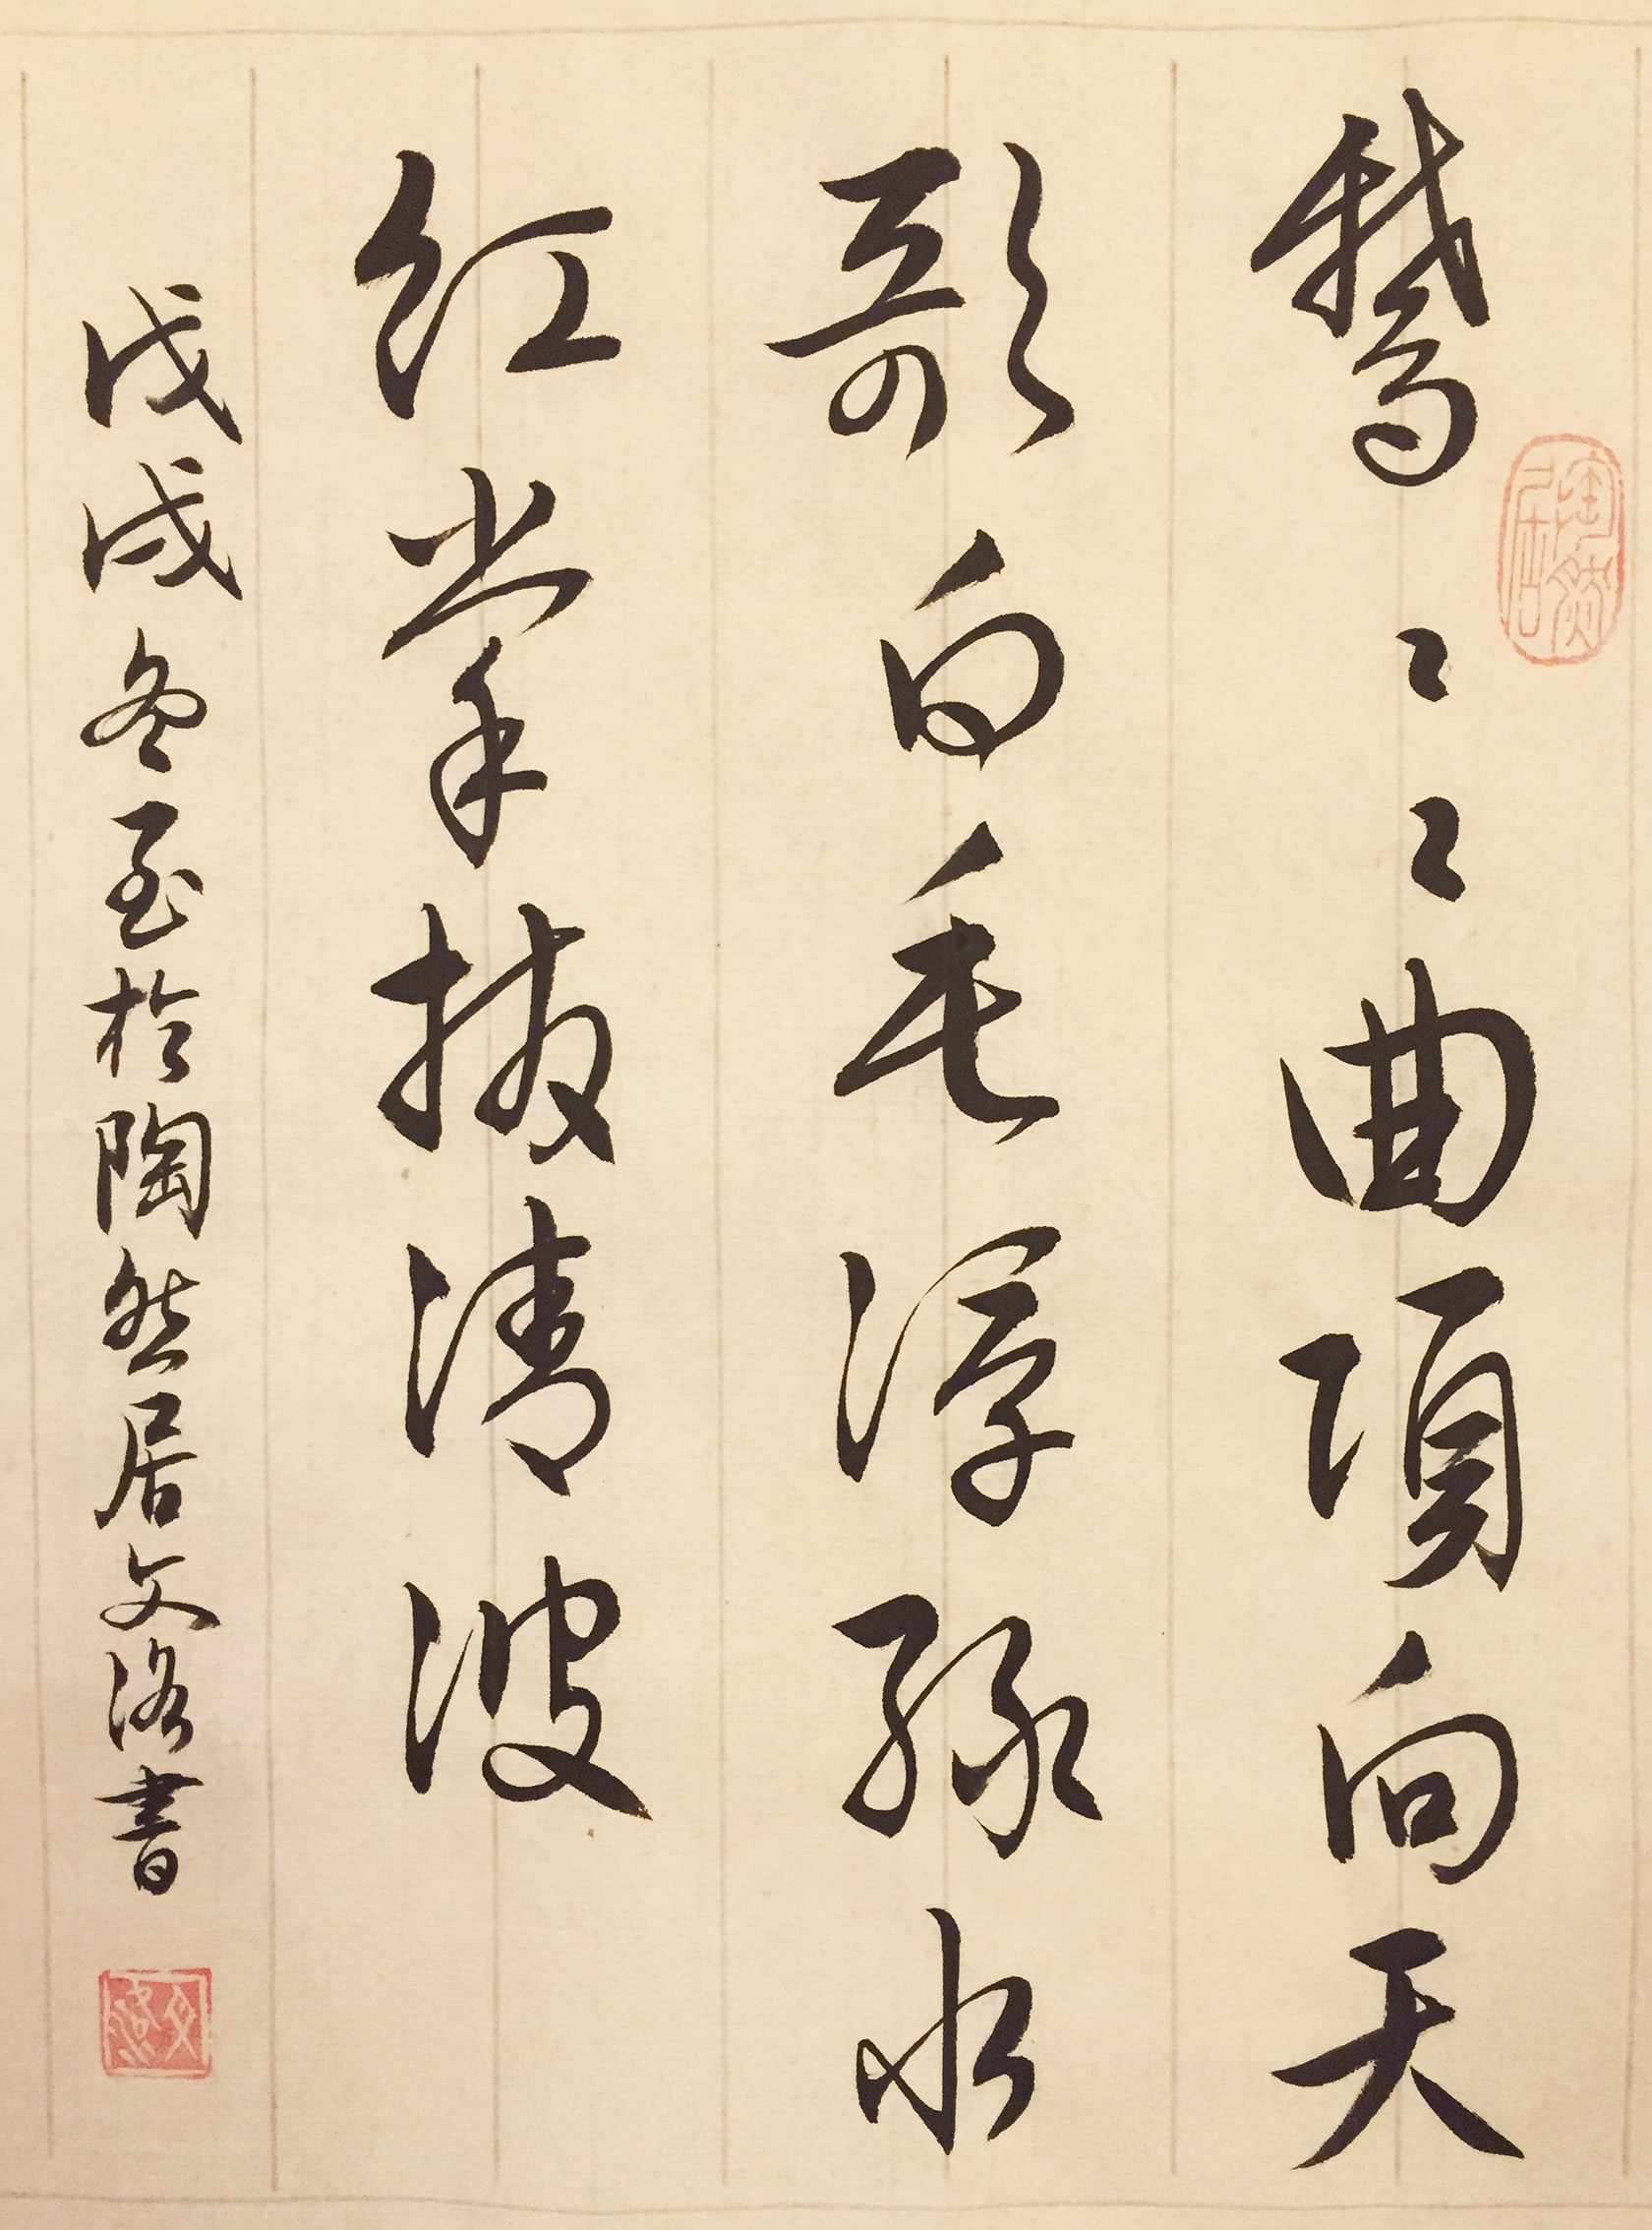 鹅〻〻曲項向天
歌白毛浮綠水
紅掌撥清波
戊戌冬至於陶然居文洛書
陶然居
文洛